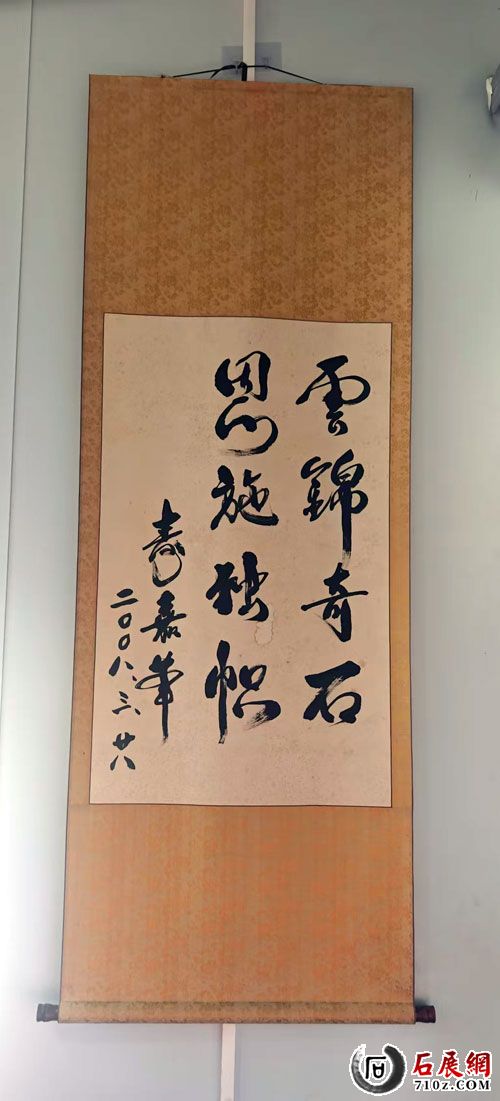 雲錦奇石
恩施独帜
寿嘉华
二〇〇八、三、廿八
石展網
石
710z.com